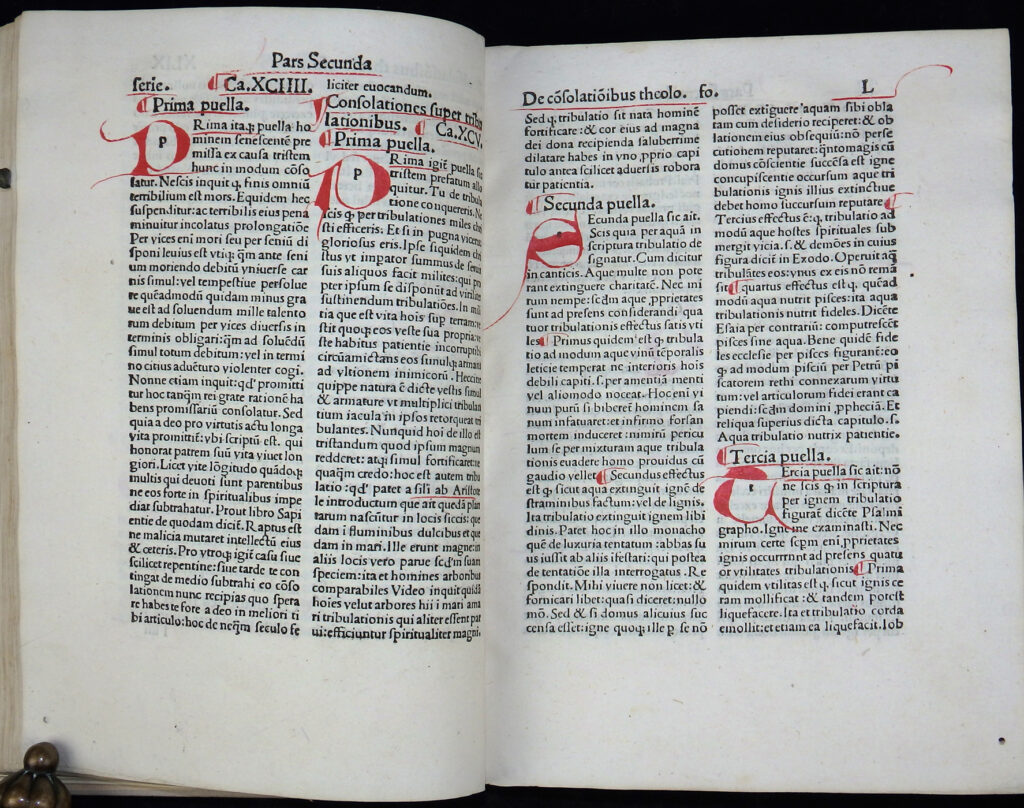 Pars Secunda
serie. ¶ Ca.XCIIII.
¶ Prima puella.
P
PRima itaq; puella ho
minem senescentẽ pre
missa ex causa tristem
hunc in modum cõso
latur. Nescis inquit q; finis omniũ
terribilium est mors. Equidem hec
suspenditur: ac terribilis eius pena
minuitur incolatus prolongatiõe
Per vices eni mori seu per seniũ di
sponi leuius est vtiq; q̃m ante seni
um moriendo debitũ vniuerse car
nis simul: vel tempestiue persolue
re queadmodũ quidam minus gra
ue est ad soluendũ mille talento
rum debitum per vices diuersis in
terminis obligari: q̃m ad soluendũ
simul totum debitum: vel in termi
no citius aducturo violenter cogi.
Nonne etiam inquit: qd' promitti
tur hoc tanq̃m rei grate rationẽ ha
bens promissariũ consolatur. Sed
quia a deo pro virtutis actu longa
vita promittit: vbi scriptũ est. qui
honorat patrem suũ vita viuet lon
giori. Licet vite lõgitudo quãdoq;
multis qui deuoti sunt parentibus
ne eos forte in spiritualibus impe
diat subtrahatur. Prout libro Sapi
entie de quodam dicit̃. Raptus est
ne malicia mutaret intellectũ eius
& ceteris. Pro vtroq; igit̃ casu siue
scilicet repentine: siue tarde te con
tingat de medio subtrahi eo cõso
lationem nunc recipias quo spera
re habes te fore a deo in meliori ti
bi articulo: hoc de neq̃m seculo fe
liciter euocandum.
Consolationes super tribu
lationibus. ¶ Ca.XCV.
¶ Prima puella.
P
PRima igit̃ puella sic
tristem prefatum allo
quitur. Tu de tribula
tione conquereris. Ne
scis q; per tribulationes miles chri
sti efficeris. Et si in pugna viceris
gloriosus eris. Ipse siquidem chri
stus vt impator summus de seruis
suis aliquos facit milites: qui pro
pter ipsum se disponũt ad viriliter
sustinendum tribulatiões. In mili
tia que est vita hois sup terram: ve
stit quoq; eos veste sua propria: ve
ste habitus patientie incorruptibi
circũamictans eos simulq; armans
ad vltionem inimicorũ. Heccine
quippe natura ẽ dicte vestis simul
& armature vt multiplici tribulan
tium iacula in ipsos retorqueat tri
bulantes. Nunquid hoi de illo est
tristandum quod ipsum magnum
redderet: atq; simul fortificaret: ne
quaq̃m credo: hoc est autem tribu
latio: qd' patet a sili ab Aristote
le introductum que ait quedã plan
tarum nascũtur in locis siccis: que
dam i fluminibus dulcibus et que
dam in mari. Ille erunt magne: in
aliis locis vero parue scd̃m suam
speciem: ita et homines arboribus
comparabiles Video inquit quidã
hoies velut arbores hii i mari ama
ri tribulationis qui aliter essent par
ui: efficiuntur spiritualiter magni.
De cõsolatiõibus theolo. fo. L
Sed q; tribulatio sit nata hominẽ
fortificare: & cor eius ad magna
dei dona recipienda salubertime
dilatare habes in vno, pprio capi
tulo antea scilicet aduersis robora
tur patientia.
¶ Secunda puella.
SEcunda puella sic ait.
Scis quia per aquã in
scriptura tribulatio de
signatur. Cum dicitur
in canticis. Aque multe non pote
rant extinguere charitatẽ. Nec mi
rum nempe: scd̃m aque, pprietates
sunt ad presens considerandi qua
tuor tribulationis effectus satis vti
les ¶ Primus quidem est q; tribula
tio ad modum aque vinũ tẽporalis
leticie temperat ne interioris hois
debili capiti. s. per amentiã menti
vel aliomodo noceat. Hoc eni vi
num purũ si biberet hominem sa
num infatuaret: et infirmo forsan
mortem induceret: nimirũ pericu
lum se per mixturam aque tribula
tionis euadere homo prouidus cũ
gaudio vellet ¶ Secundus effectus
est q; sicut aqua extinguit ignẽ de
straminibus factum: vel de lignis.
Ita tribulatio extinguit ignem libi
dinis. Patet hoc in illo monacho
quẽ de luxuria tentatum: abbas su
us iussit ab aliis ifestari: qui postea
de tentatiõe illa interrogatus. Re
spondit. Mihi viuere non licet: &
fornicari libet: quasi diceret: nullo
mõ. Sed & si domus alicuius suc
censa esset: igne quoq; ille p se nõ
posset extiguere 'aquam sibi obla
tam cum desiderio reciperet: & ob
lationem eius obsequiũ: nõ perse
cutionem reputaret: q̃ntomagis cũ
domus cõscientie succẽsa est igne
concupiscentie occursum aque tri
bulationis ignis illius extinctiue
debet homo succursum reputare ¶
Tercius effectus ẽ: q; tribulatio ad
modũ aqua hostes spirituales sub
mergit vicia. s. & demões in cuius
figura dicit̃ in Exodo. Operuit aq̃
tribulãtes eos: vnus ex eis nõ remã
sit ¶ quartus effectus est q; quead
modũ aqua nutrit pisces: ita aqua
tribulationis nutrit fideles. Dicẽte
Esaia per contrariũ: computrescẽt
pisces sine aqua. Bene quidẽ fide
les ecclesie per pisces figurant̃: eo
q; ad modum pisciũ per Petrũ pi
scatorem rethi connexarum virtu
tum: vel articulorum fidei erant ca
piendi: scd̃m domini, ppheciã. Et
reliqua superius dicta capitulo. s.
Aqua tribulatio nutrix patientie.
¶ Tercia puella.
t
TErcia puella sic ait: nõ
ne scis q; in scriptura
per ignem tribulatio
figurat̃ dicẽte Psalmi
grapho. Igne me examinasti. Nec
mirum certe scpm eni, pprietates
ignis occurrnnt ad presens quatu
or vtilitates tribulationis ¶ Prima
quidem vtilitas est q; sicut ignis ce
ram mollificat: & tandem potest
liquefacere. Ita et tribulatio corda
emollit: et etiam ea liquefacit. Iob